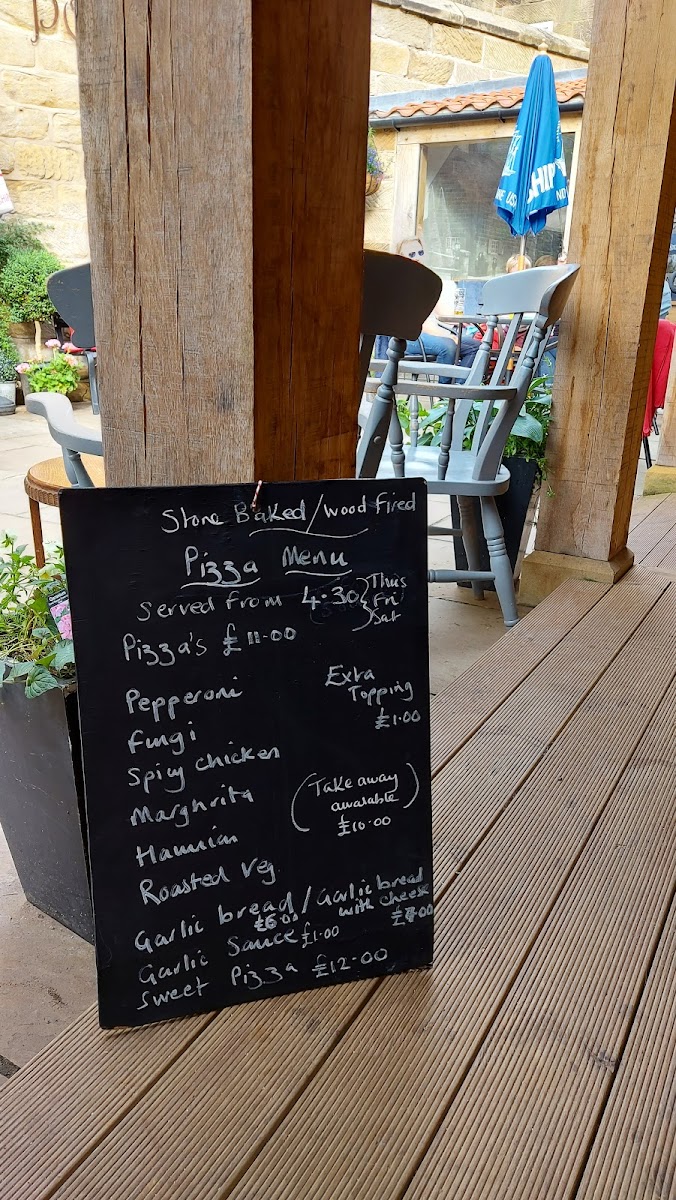 Stone Baked/Wood Fired
Pizza Menu
Served from 4.30 } Thurs
Fri
Sat
Pizza's £11.00
Pepperoni
Extra
Topping
£1.00
Fungi
Spicy chicken
Marghrita
(Take away
available)
£10.00
Hawaiian
Roasted Veg
Garlic bread / Garlic bread
£6.00 with cheese
£7.00
Garlic Sauce £1.00
Sweet Pizza £12.00
SHIP